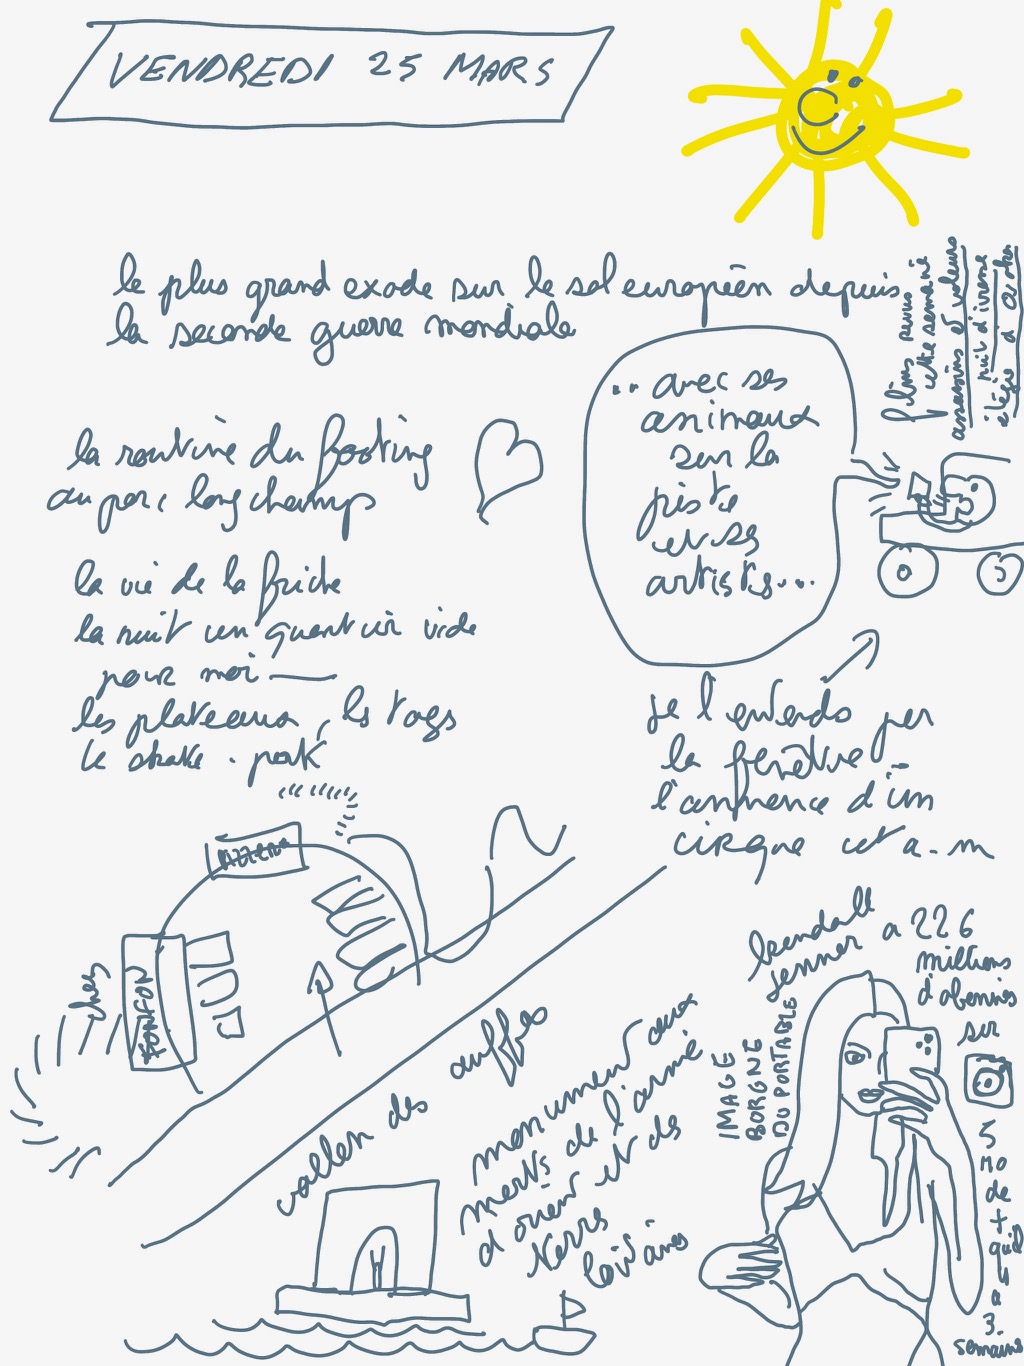 VENDREDI 25 MARS
le plus grand exode sur le sol européen depuis
la seconde guerre mondiale
films revus
cette semaine
assassins et voleurs
nuit d'ivresse
.. avec ses
animaux
sur la
piste
et ses
artistes...
la routine du footing
au parc longchamps
la vie de la friche
la nuit un quartier vide
pour moi —
les plateaux, les tags
le skate-park
je l'entends par
la fenêtre
l'annonce d'un
cirque cet a-m
chez
FONFON
vallon des auffes
monument aux
morts de l'armée
d'orient et des
terres
lointaines
kendall
jenner a 226
millions
d'abonnés
sur
IMAGE
BORGNE
DU PORTABLE
5
MO
de
+
qu'il
y
a
3
semaines